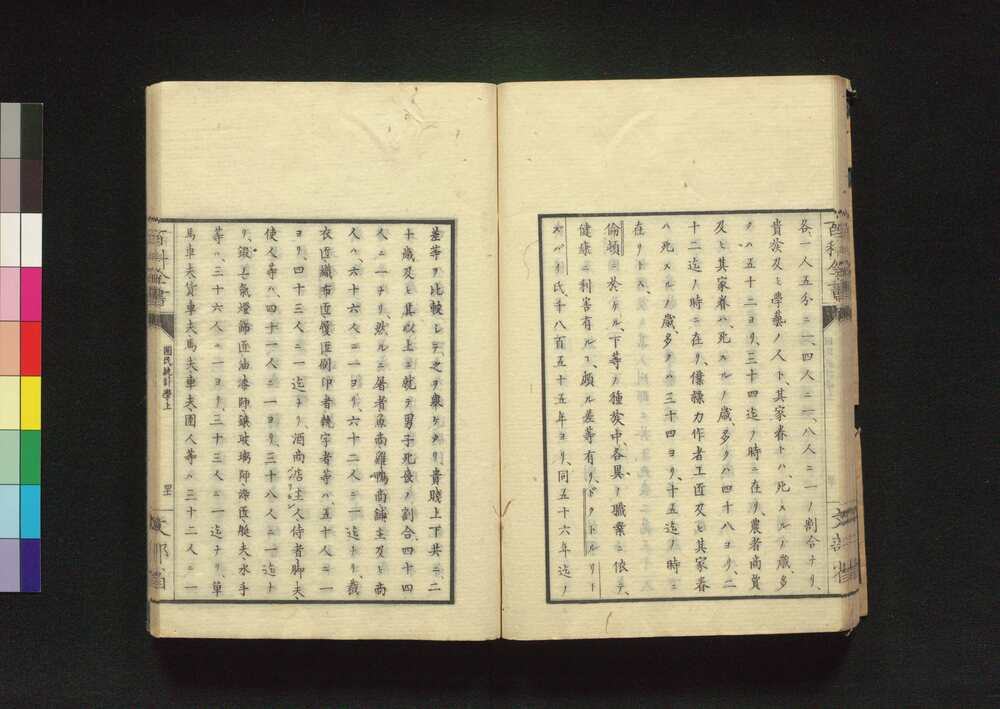 各、一人五分ニ一、四人ニ一、八人ニ一ノ割合ナリ、
貴族及ヒ學藝ノ人ト、其家眷トハ、死スルノ歳、多
クハ五十二ヨリ、三十四迄ノ時ニ在リ、農者商賈
及ヒ其家眷ハ、死スルノ歳、多クハ四十八ヨリ、二
十二迄ノ時ニ在リ、傭隷力作者工匠及ヒ其家眷
ハ死スルノ歳、多クハ三十四ヨリ、十五迄ノ時ニ
在リトス、
倫頓ニ於ケル、下等ノ種族中、各異ノ職業ニ依テ、
健康ニ利害有ル丶、頗ル差等有リ、ドクトル、リト
ルバイ氏、千八百五十五年ヨリ、同五十六年迄ノ
百科全書
文部省
差等ヲ比較シテ、之ヲ擧ケタリ、貴賤上下共ニ、二
十歳及ヒ其以上ニ就テ男子死喪ノ割合、四十四
人ニ一ナリ、然ルニ屠者魚商雞鴨商鋪主及ヒ商
人ハ、六十六人ニ一ヨリ、六十二人ニ一迄ナリ、裁
衣匠織布匠履匠刷印者鐫字者等ハ、五十人ニ一
ヨリ、四十三人ニ一迄ナリ、酒商店主人侍者脚夫、
使人等ハ、四十一人ニ一ヨリ、三十八人ニ一迄ナ
リ、鍛工氣燈師匠油漆師鑲玻璃師漆匠艇夫、水手
等ハ、三十六人ニ一ヨリ、三十三人ニ一迄ナリ、單
馬車夫貨車夫馬夫車夫圉人等ハ三十二人ニ一
百科全書
國民統計學上
文部省